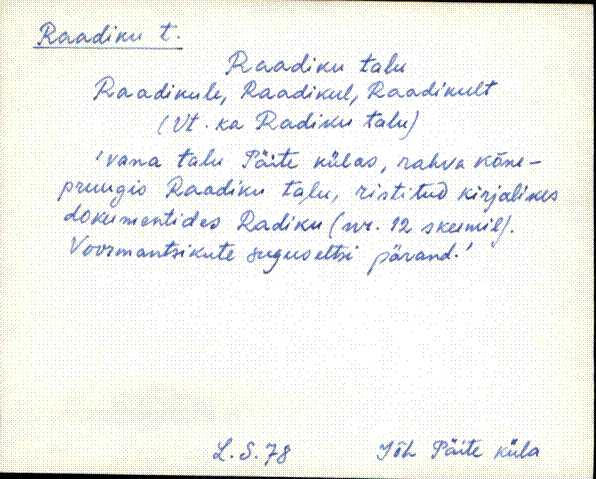 Raadiku t.
Raadiku talu
Raadikule, Raadikul, Raadikult
(Vt. ka Radiku talu)
'vana talu Päite külas, rahva kõne-
pruugis Raadiku talu, ristitud kirjalikes
dokumentides Radiku (nr. 12 skeemil).
Voormantsikute suguseltsi pärand.'
L.S.78 Jõh Päite küla